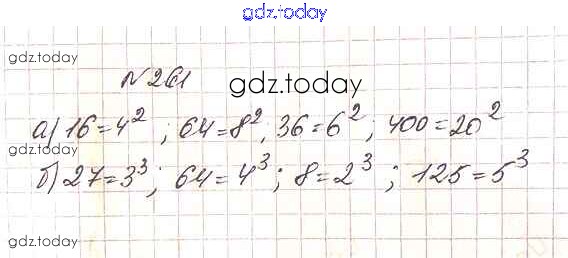 gdz.today
gdz.today
№261
gdz.today
а) 16=4²; 64=8²; 36=6²; 400=20²
gdz.today
б) 27=3³; 64=4³; 8=2³; 125=5³
gdz.today